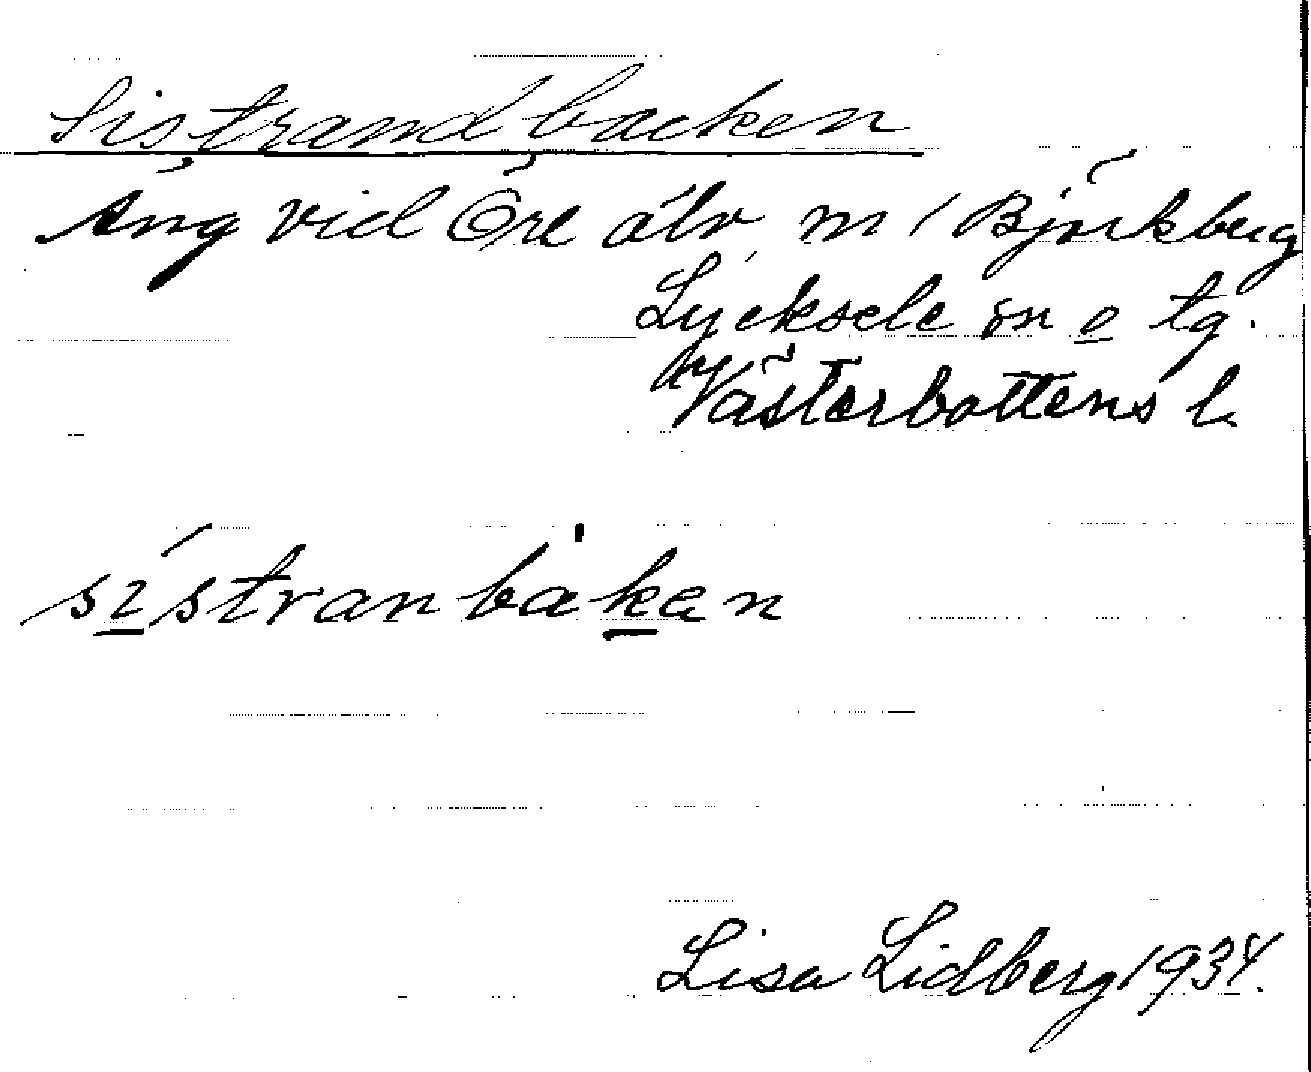 Sistrandbacken
Äng vid Öre älv, m / Björkberg
Lycksele sn o tg.
Västerbottens l.
sístranba'ken
Lisa Lidberg 1934.